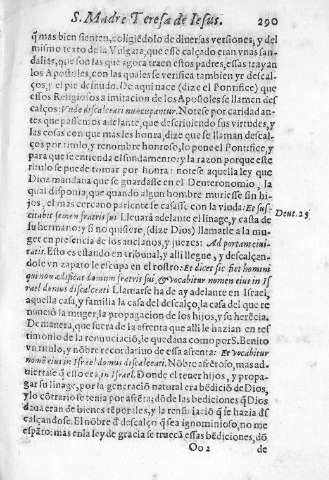 S. Madre Teresa de Iesus. 290
q̃ mas bien sienten, coligiẽdolo de diuersas versiones, y del
mismo texto de la Vulgata, que este calçado eran vnas san-
dalias, que son las que agora traen estos padres, essas trayan
los Apostoles, con las quales se verifica tambien yr descal-
ços, y el pie desnudo. De aqui nace (dize el Pontifice) que
estos Religiosos a imitacion de los Apostoles se llamen des
calços: Vnde discalceati nuncupantur. Notese por caridad an-
tes que passemos adelante, que descriuiendo sus virtudes, y
las cosas con que mas les honra, dize que se llaman descal-
ços por titulo, y renombre honroso, lo pone el Pontifice, y
para que se entienda el fundamento: y la razon porque este
titulo se puede tomar por honra: notese aquella ley que
Dios mandaua que se guardasse en el Deuteronomio, la
qual disponia, que quando algun hombre muriesse sin hi-
jos, el mas cercano pariente se casasse con la viuda: Et sus
citabit semen fratris sui Lleuarà adelante el linage, y casa de
su hermano: y si no quisiere, (dize Dios) llamarle a la mu-
ger en presencia de los ancianos, y juezes: Ad portam ciui-
tatis. Esto es estando en tribunal, y alli llegue, y descalçan-
dole vn zapato le escupa en el rostro: Et dicet sic fiet homini
qui non ædificat domum fratris sui, & vocabitur nomen eius in Is
rael domus discalceati. Llamarse ha de ay adelante en Israel,
aquella casa, y familia la casa del descalço, la casa del que re
nunciò la muger, la propagacion de los hijos, y su herẽcia.
De manera, que fuera de la afrenta que alli le hazian en tes
timonio de la renunciaciõ, le quedana como por S. Benito
vn titulo, y nõbre recordatiuo de essa afrenta: Et vocabitur
nomẽ eius in Israel domus discalceati. Nõbre afrẽtoso, mas ad
uiertase q̃ esso era in Israel. Donde el tener hijos, y propa-
gar su linage, por la generaciõ natural era bẽdiciõ de Dios,
y lo cõtrario se tenia por afrẽta; dõde las bediciones q̃ Dios
daua eran de bienes tẽporales, y la renũciaciõ q̃ se hazia des
calçandose. El nõbre d̃ descalço q̃ sea ignominioso, no me
espãto: mas en la ley de gracia se truecã essas bẽdiciones, dõ
Deut. 25.
Ooo 2 de